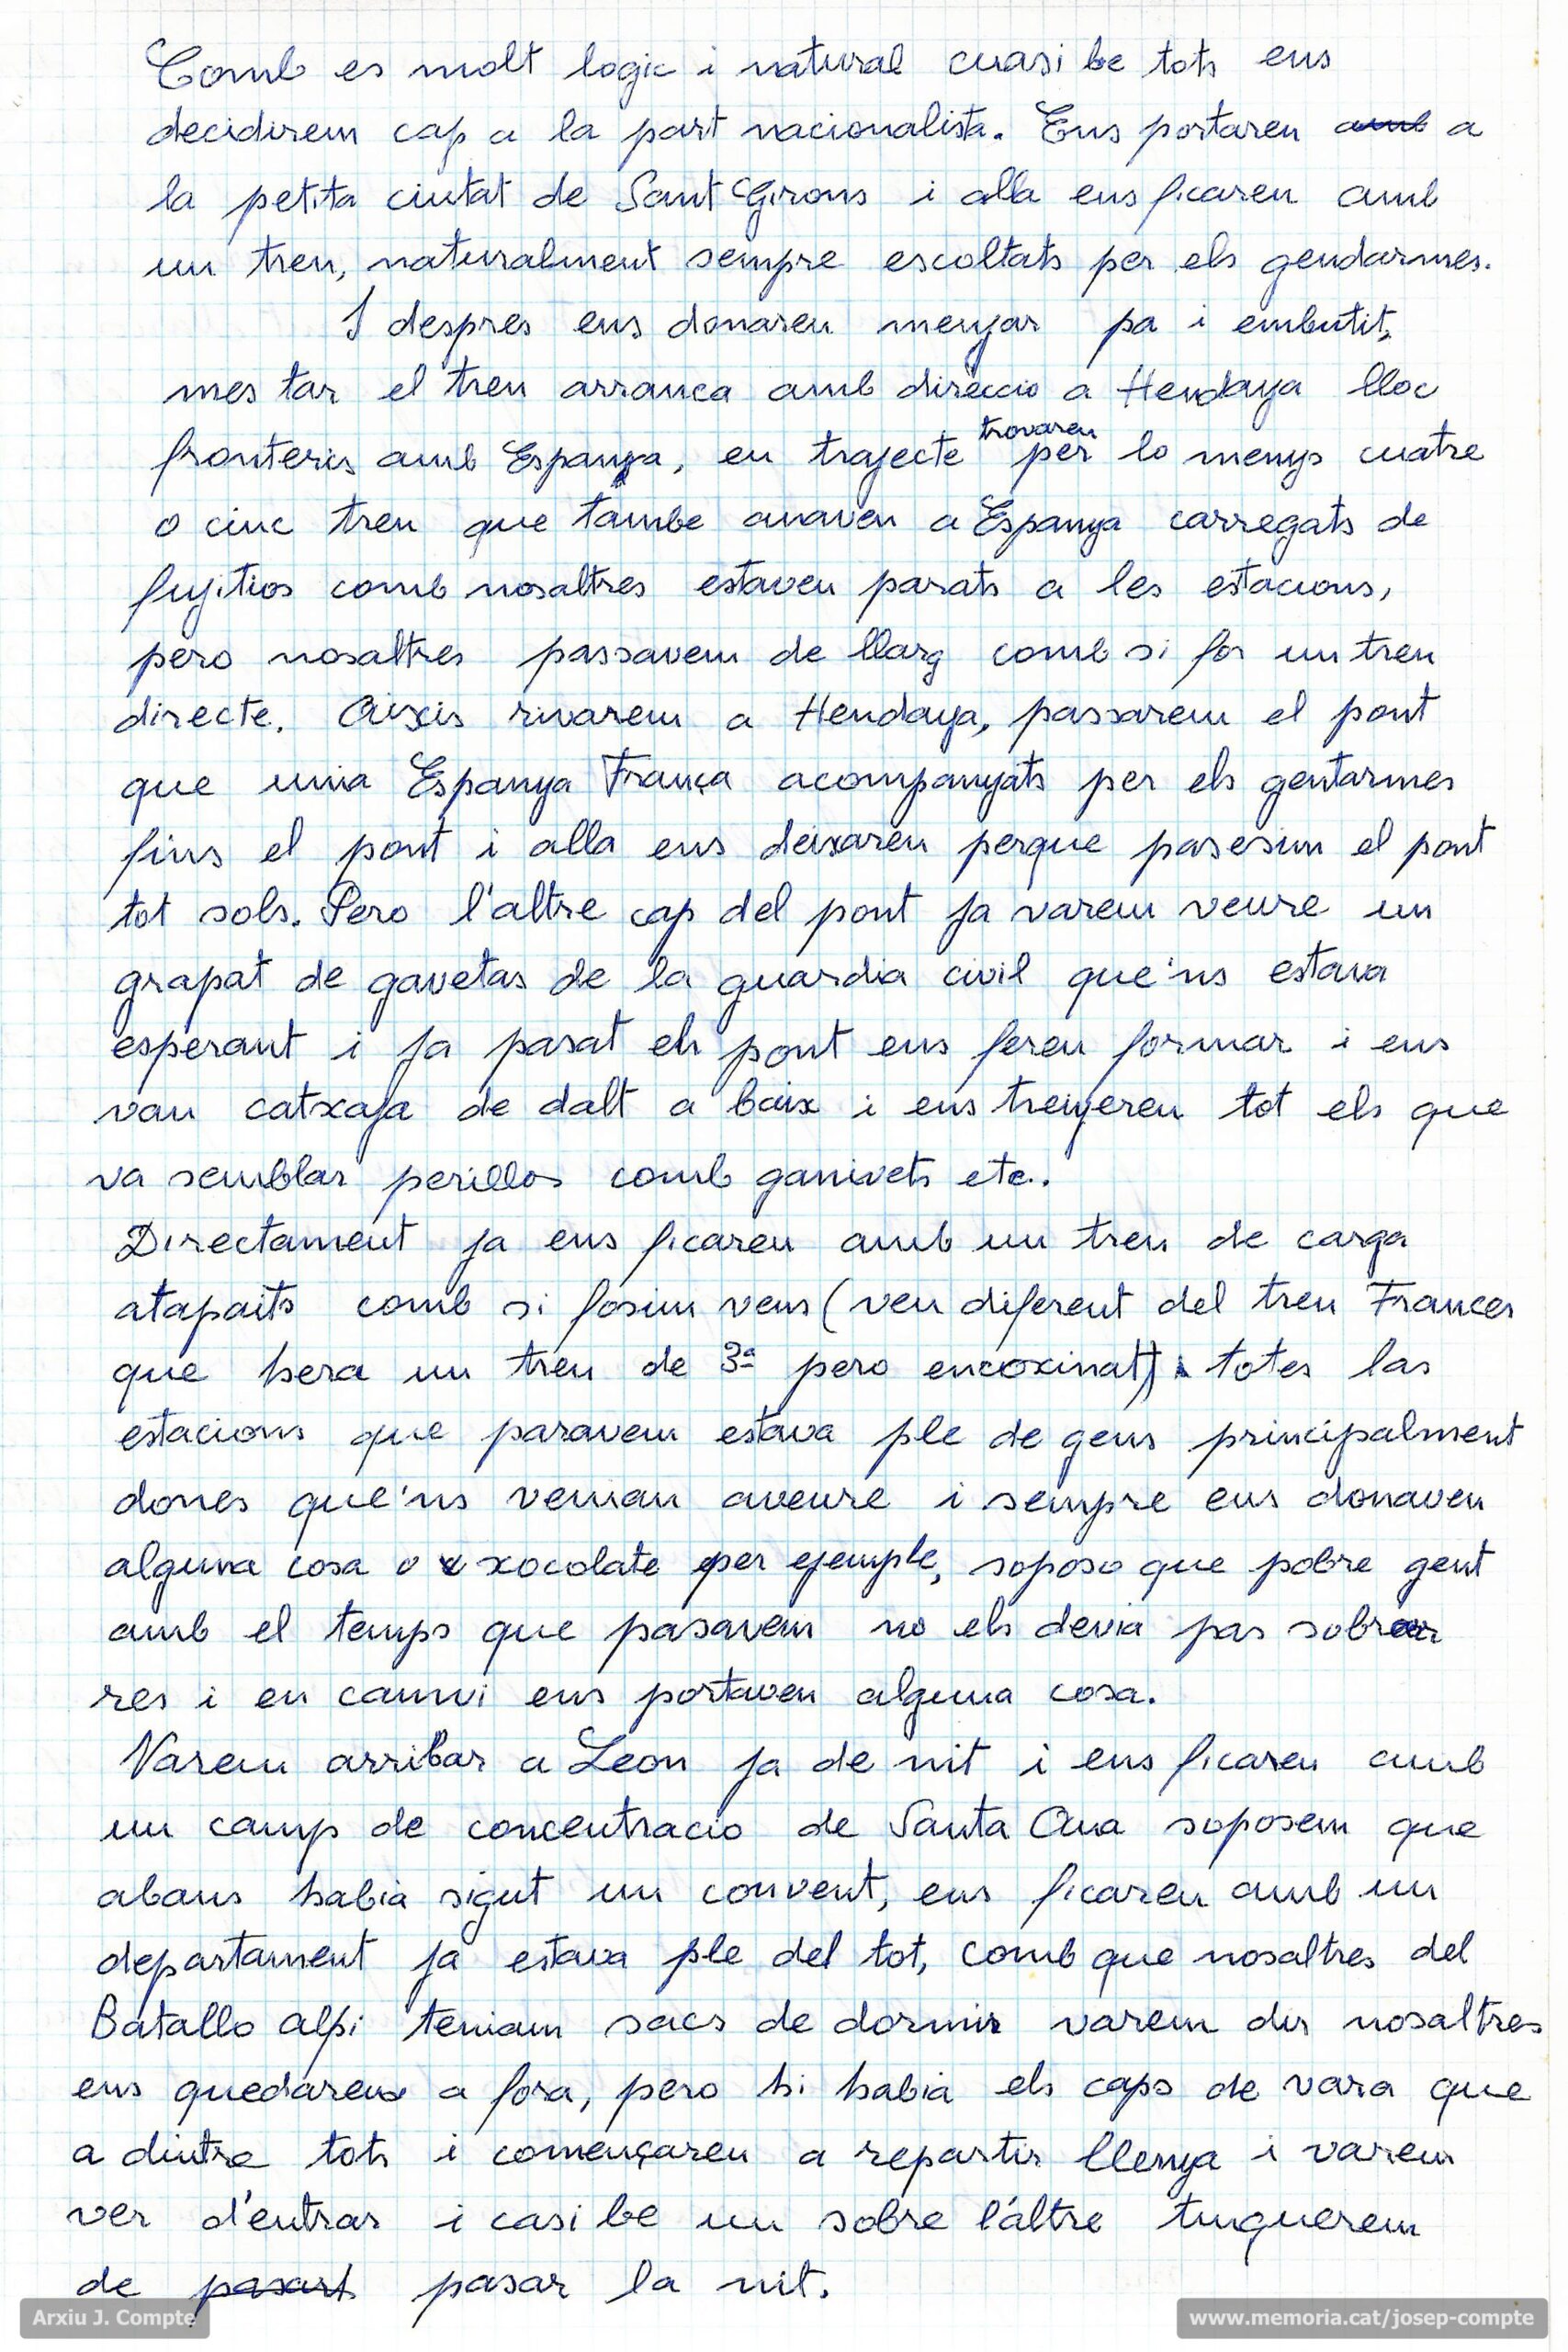 Comb es molt logic i natural cuasi be tots ens
decidirem cap a la part nacionalista. Ens portaren amb a
la petita ciutat de Sant Girons i alla ens ficaren amb
un tren, naturalment sempre escoltats per els gendarmes.
I despres ens donaren menjar pa i embutit,
mes tar el tren arranca amb direccio a Hendaya lloc
fronteris amb Espanya, en trajecte trovaren per lo menys cuatre
o cinc tren que tambe anaven a Espanya carregats de
fujitios comb nosaltres estaven parats a les estacions,
pero nosaltres passavem de llarg comb si fos un tren
directe. Aixis rivarem a Hendaya, passarem el pont
que unia Espanya França acompanyats per els gentarmes
fins el pont i alla ens deixaren perque pasesim el pont
tot sols. Pero l'altre cap del pont ja varem veure un
grapat de gavetas de la guardia civil que'ns estava
esperant i ja pasat els pont ens feren formar i ens
van catxaja de dalt a baix i ens trenjeren tot els que
va semblar perillos comb ganivets etc.
Directament ja ens ficaren amb un tren de carga
atapaits comb si fosim vens (ven diferent del tren Frances
que hera un tren de 3ª pero encoxinat) totes las
estacions que paravem estava ple de gens principalment
dones que'ns venian aveure i sempre ens donaven
alguna cosa o xocolate per ejemple, soposo que pobre gent
amb el temps que pasavem no els devia pas sobrar
res i en canvi ens portaven alguna cosa.
Varem arribar a Leon ja de nit i ens ficaren amb
un camp de concentracio de Santa Ana soposem que
abans habia sigut un convent, ens ficaren amb un
departament ja estava ple del tot, comb que nosaltres del
Batallo alpi teniam sacs de dormir varem dir nosaltres
ens quedarem a fora, pero hi habia els caps de vara que
a dintre tots i començaren a repartir llenya i varem
ver d'entrar i casi be un sobre l'altre tinguerem
de pasart pasar la nit.
Arxiu J. Compte
www.memoria.cat/josep-compte